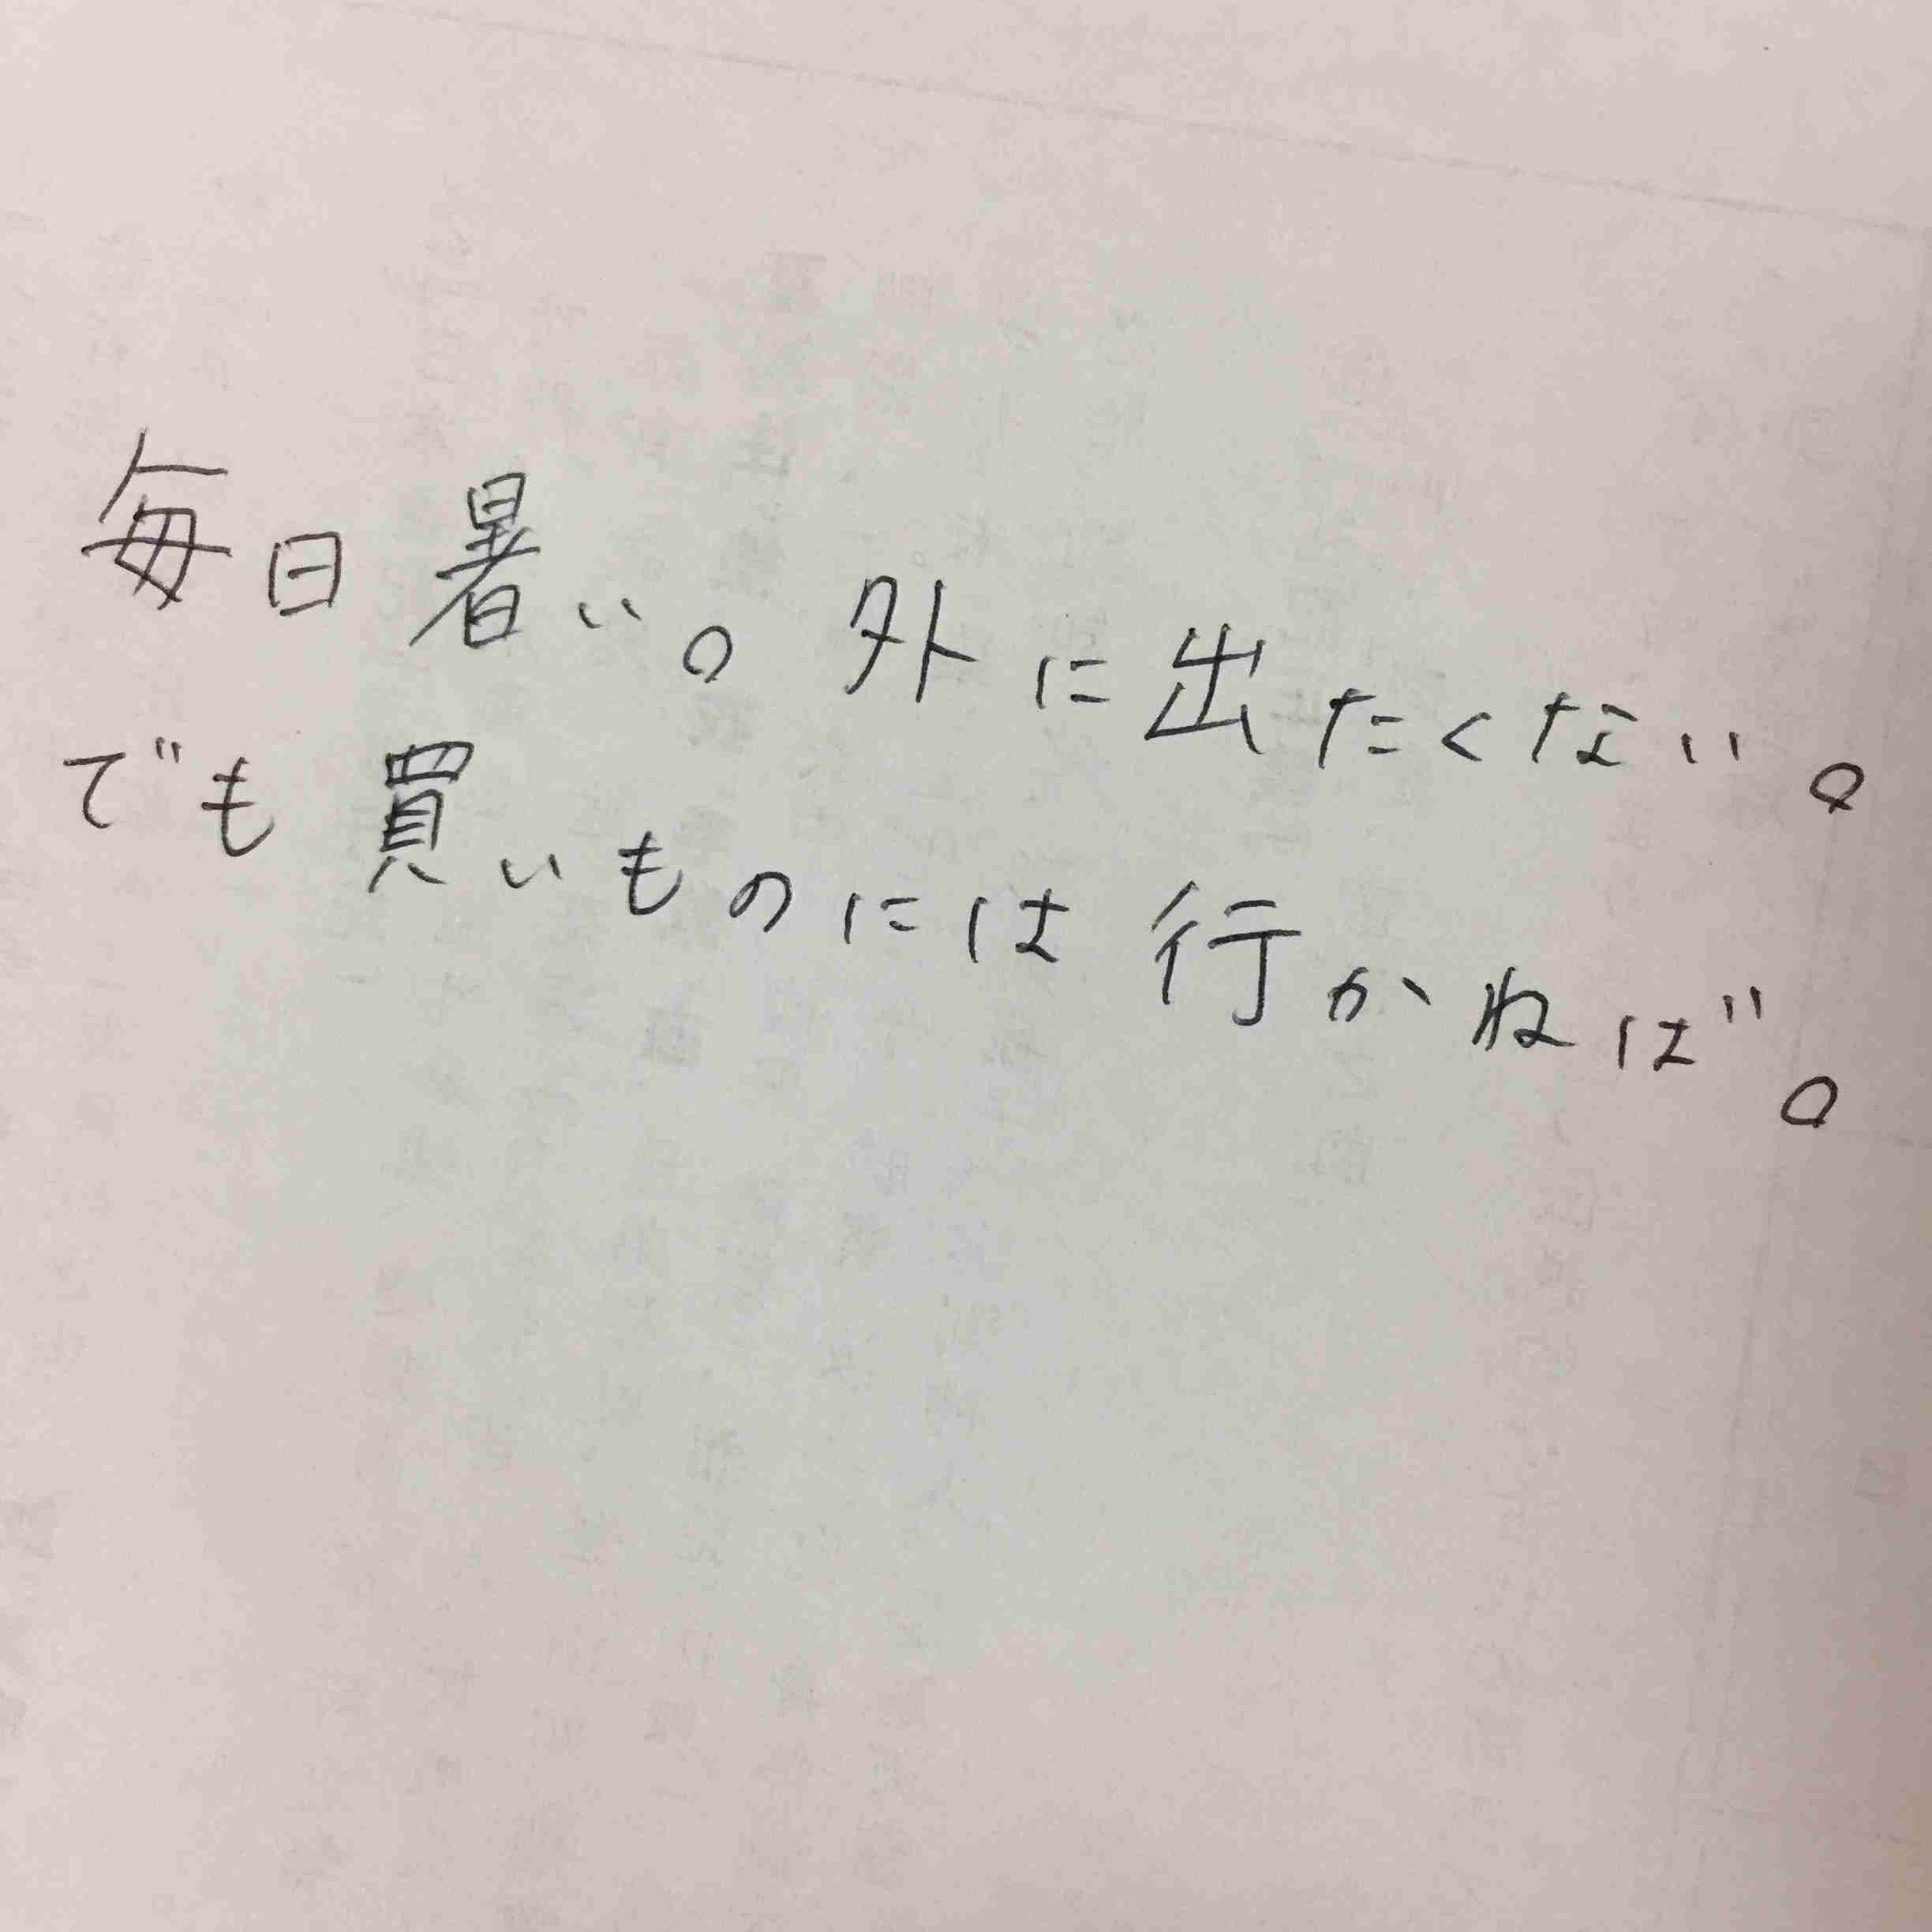 毎日暑い。外に出たくない。
でも買いものには行かねば。